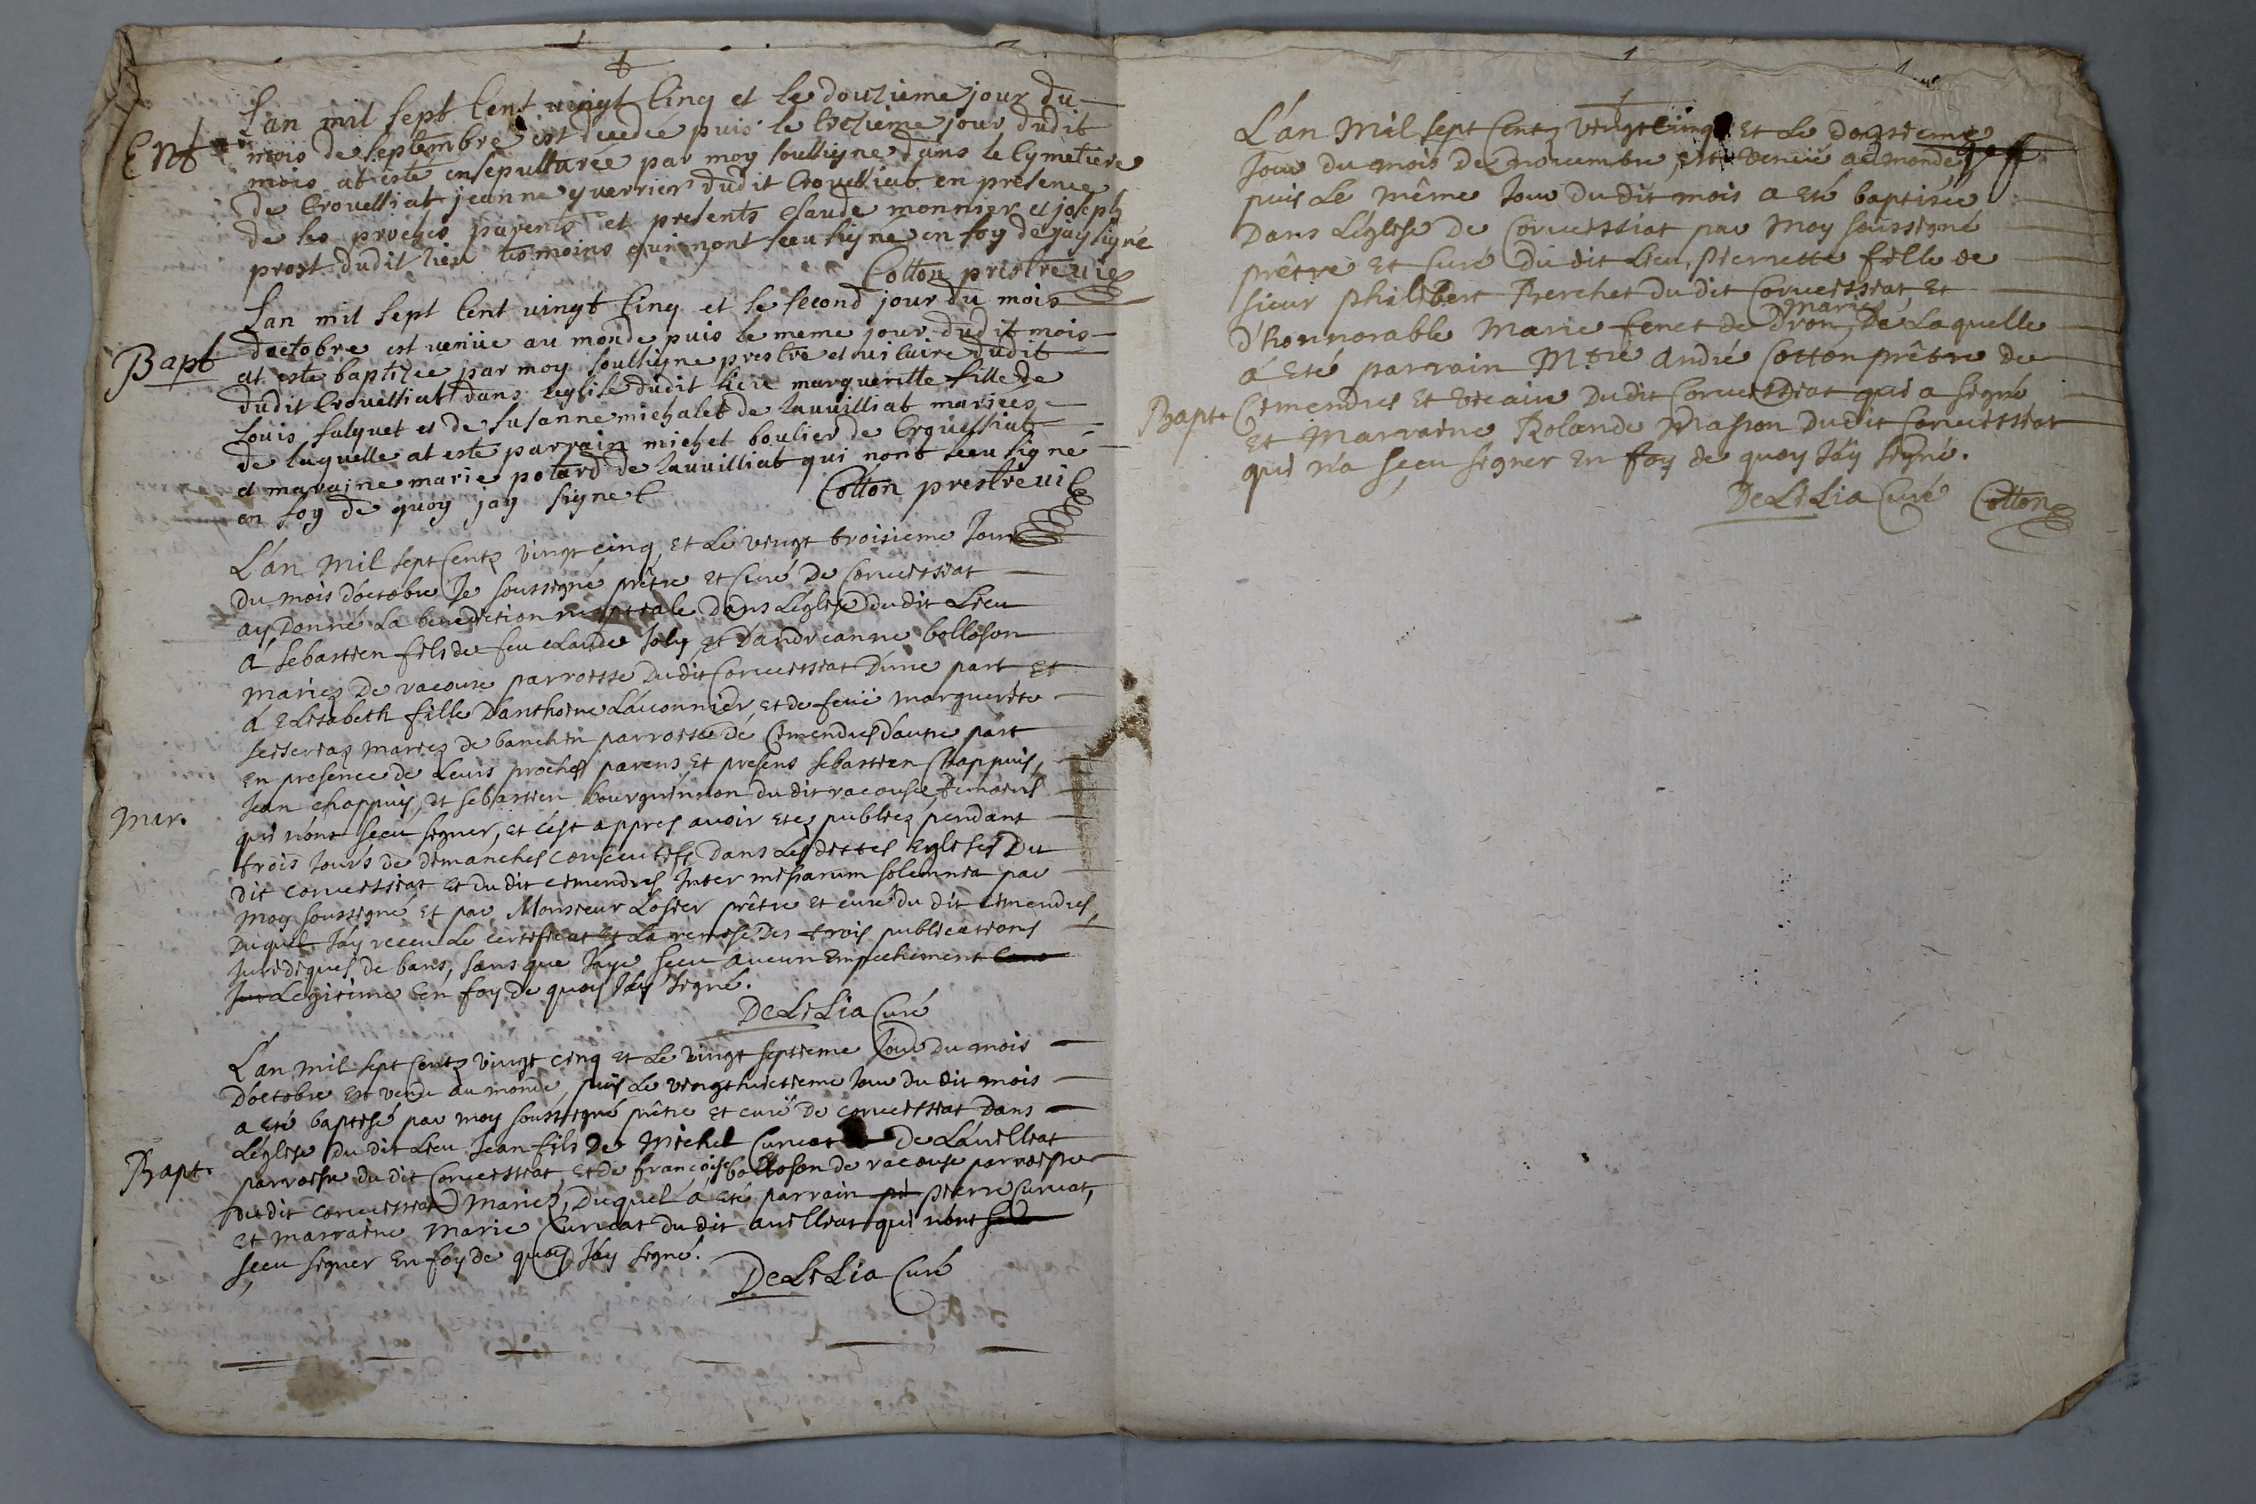 Ent
Lan mil sept Cent vingt Cinq et le douzieme jour du
mois de septembre est decedée puis le trezieme jour dudit
mois at esté ensepulturée par moy soussigne dans le Cymetiere
de Crouessiat jeanne guerrier dudit Crouessiat en presence
de ses proches parents et presents Claude monnier et joseph
prost dudit lieu tesmoins qui nont sceu signe en foy de jay signé
Cotton prestre vic
Bapt
Lan mil sept Cent vingt Cinq et le second jour du mois
doctobre est venue au monde puis le meme jour dudit mois
at esté baptizée par moy soussigne prestre et vicaire dudit
dudit Crouessiat dans leglise dudit lieu margueritte fille de
Louis falquet et de susanne michalet de lauvilliat mariees
de laquelle at este parrain michel boulier de Crouessiat
et maraine marie potard de lauvilliat qui nont sceu signé
en foy de quoy jay signe
Cotton prestre vic
Mar.
L'an mil sept Centz vingt cinq, et Le vingt troisieme Jour
Du mois d'octobre Je soussigné prêtre et Curé De Corveissiat
ay Donné La benediction nuptiale Dans L'église du dit Lieu
à Sebastien fils de feu claude Joly, et D'andreanne bolloson
mariez De racouse parroisse Du dit Corveissiat D'une part et
à Elisabeth fille D'anthoine Lauonnier et de feüe marguerite
mariez de banchin parroisse de Cimendres d'autre part
En presence de Leurs proches parens, et presens sebastien Chappuis,
Jean chappuis, et sebastien bourguignon du dit racouse, temoins
qui n'ont sceu signer, et c'est appres avoir etez publiez pendant
trois Jours de dimanches consecutifs Dans Lesdittes Eglises Du
Dit Corveissiat et du dit cimendres Inter missarum solemnia par
moy soussigné et par Monsieur Losier prêtre et curé du dit Cimendres,
Duquel J'ay receu Le certificat et La remise Des trois publications
Juridiques de bans, sans que J'aye sceu aucun Empechement
Legitime En foy de quoy J'ay signé.
DeLiLia Curé
Bapt.
L'an mil sept Centz vingt cinq et Le vingt septieme Jour Du mois
D'octobre est venu au monde, puis Le vingthuictieme Jour Du dit mois
a eté baptisé par moy soussigné prêtre et curé De corveissiat Dans
L'église Du dit Lieu Jean fils De Michel Curvat De L'avilliat
parroisse du dit Corveissiat, et de françoise bolloson de racouse parroisse
du dit corveissiat Mariez, Duquel à eté parrain pi pierre Curvat,
et marraine Marie Curvat du dit avilliat qui n'ont
sceu signer En foy de quoy J'ay signé.
DeLiLia Curé
Bapt.
L'án Mil sept Centz vingtcinq et Le Douzieme
Jour du mois De novembre, est venüe au monde,
puis Le même Jour Du dit mois a eté baptisée
Dans L'églese De Corveissiat par Moy soussigné
prêtre et Curé Du dit Lieu, pierrette fille de
sieur philibert Berchet du dit Corveissiat, et
D'honnorable Marie fenet de Dron, Mariez De Laquelle
à eté parrain M.tre André Cotton prêtre de
Cimendres et vicaire Du dit Corveissiat qui a signé
et Marraine Rolande Masson Du dit Corveissiat
qui n'a sceu signer En foy de quoy J'ay signé.
DeLiLia Curé Cotton